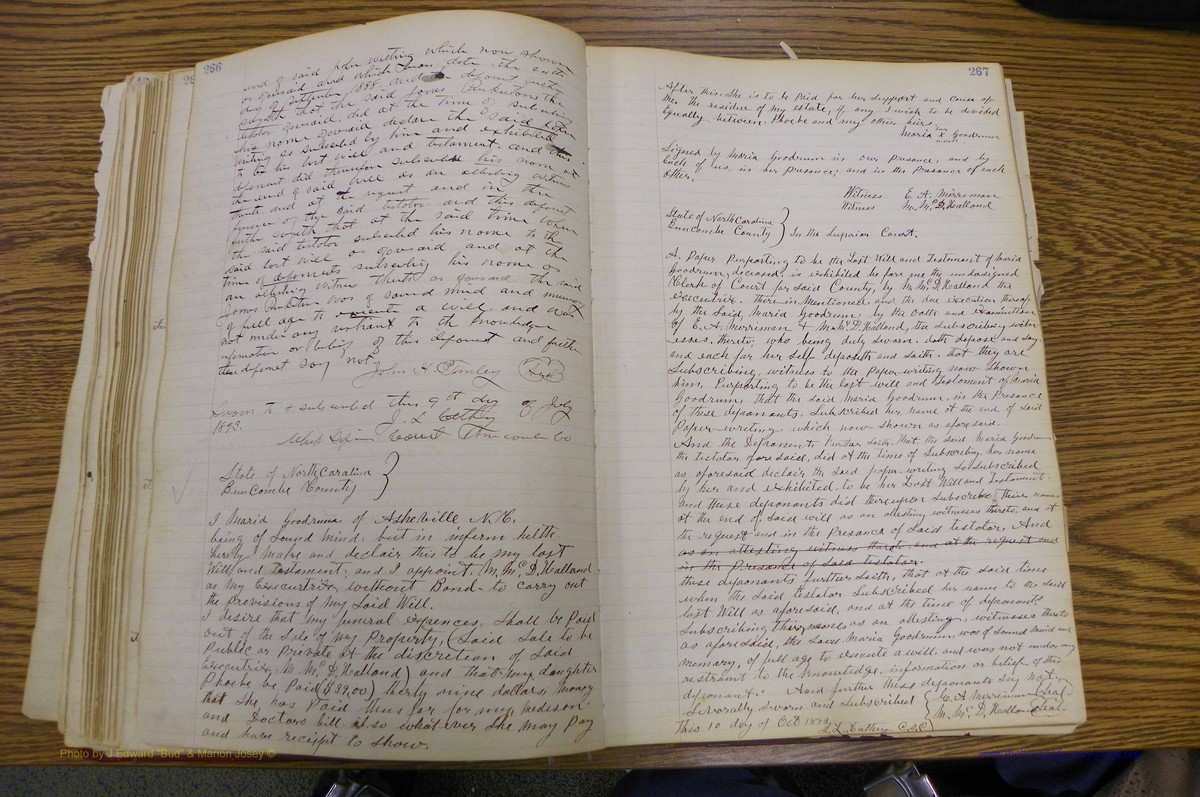 266
and of said paper writing which now shown
as aforesaid and which bears date the
day of September 1888. and this deponent further
sayeth that the said James Pinkerton the
testator aforesaid, did at the time of subscribing
his name aforesaid declare the said paper
writing so subscribed by him and exhibited
to be his last will and testament and this
deponent did thereupon subscribe his name at
the end of said will as an attesting witness
thereto and at the request and in the
presence of the said testator and this deponent
further sayeth that at the said time when
the said testator subscribed his name to the
said last will as aforesaid and at the
time of deponents subscribing his name as
an attesting witness thereto as aforesaid the said
James Pinkerton was of sound mind and memory
of full age to execute a will and was
not under any restraint to the knowledge
information or belief of this deponent and further
this deponent say not.
John H. Finley (Seal)
Sworn to & subscribed this 9th day of July
1893. J. L. Cathey
Clerk Superior Court Buncombe Co.
State of North Carolina }
Buncombe County
I Maria Goodrum of Asheville N.C.
being of Sound mind, but in inferm helth
hereby make and declair this to be my last
Will and Testament; and I appoint, M, Mc D, Halland
as my Executrix, without Bond to carry out
the provisions of my Said Will.
I desire that my funeral expences, Shall be Paid
out of the Sale of my Property, (Said Sale to be
Public or Private at the discretion of Said
Executrix, M. Mc, D, Halland) and that my daughter
Phoebe be Paid ($39,00) hirty nine dollars, money
that She has Paid thus far for my medison
and Doctors bill also what ever She may Pay
and have recipt to Show.
267
After this She is to be Paid for her Support and Cause of
Me. the residue of my estate, if any I wish to be divided
Equally between. Phoebe and my other heirs.
Maria her X mark Goodrum
Signed by Maria Goodrum in our Presance, and by
Each of us, in her presance; and in the Presance of each
other.
Witness E. A. Merriman
Witness M. Mc, D, Halland
State of North Carolina }
Buncombe County } In the Superior Court.
A. Paper Purporting to be the Last Will and Testament of Maria
Goodrum, deceased, is exhibited be fore me the undasigned
Clerk of Court for Said County, by M. Mc, D, Halland the
Executrix. therein Mentioned and the due execution thereof
by the Said, Maria Goodrum. by the oath and examination
of E. A. Merriman & M. Mc, D, Halland, the Subscribing witn
esses, thereto; who being duly sworn. doth depose and say.
and each for her self deposeth and Saith, that they are
Subscribing, witness to the Paper-writing now Shown
him, Purporting to be the last will and Testament of Maria
Goodrum, that the said Maria Goodrum, in the Presance
of these deponants. Subscribed her name at the end of said
Paper-writing which now shown as aforesaid.
And the Deponents Further Saith, That the Said Maria Goodrum
the testator fore Said, did at the time of Subscribing her name
as aforesaid declair the said paper-writing So Subscribed
by her and exhibited, to be her Last Will and Testament.
and these deponants did thereupon Subscribe their names
at the end of, Said will as an attesting witnesses thereto, and at
the request and in the Presance of Said testator, And
as an attesting witness thereto and at the request and
in the Presance of Said testator.
these deponants further Saith, that at the Said time
when the Said testator Subscribed her name to the Said
last Will as aforesaid, and at the time of deponants
Subscribing their names as an attesting, witnesses thereto
as aforesaid, the Said Maria Goodrum, was of Sound Mind and
memory, of full age to execute a will, and was not under any
restrant to the Knowledge, information or belief of this
deponant. And further these deponants Say not,
Severally Sworn and Subscribed { E. A. Merriman Seal
this 10 day of Oct 189 { M, Mc, D, Halland Seal
J. L. Cathey C.S.C.
Photo by J Edward "Bud" & Marion Josey ©